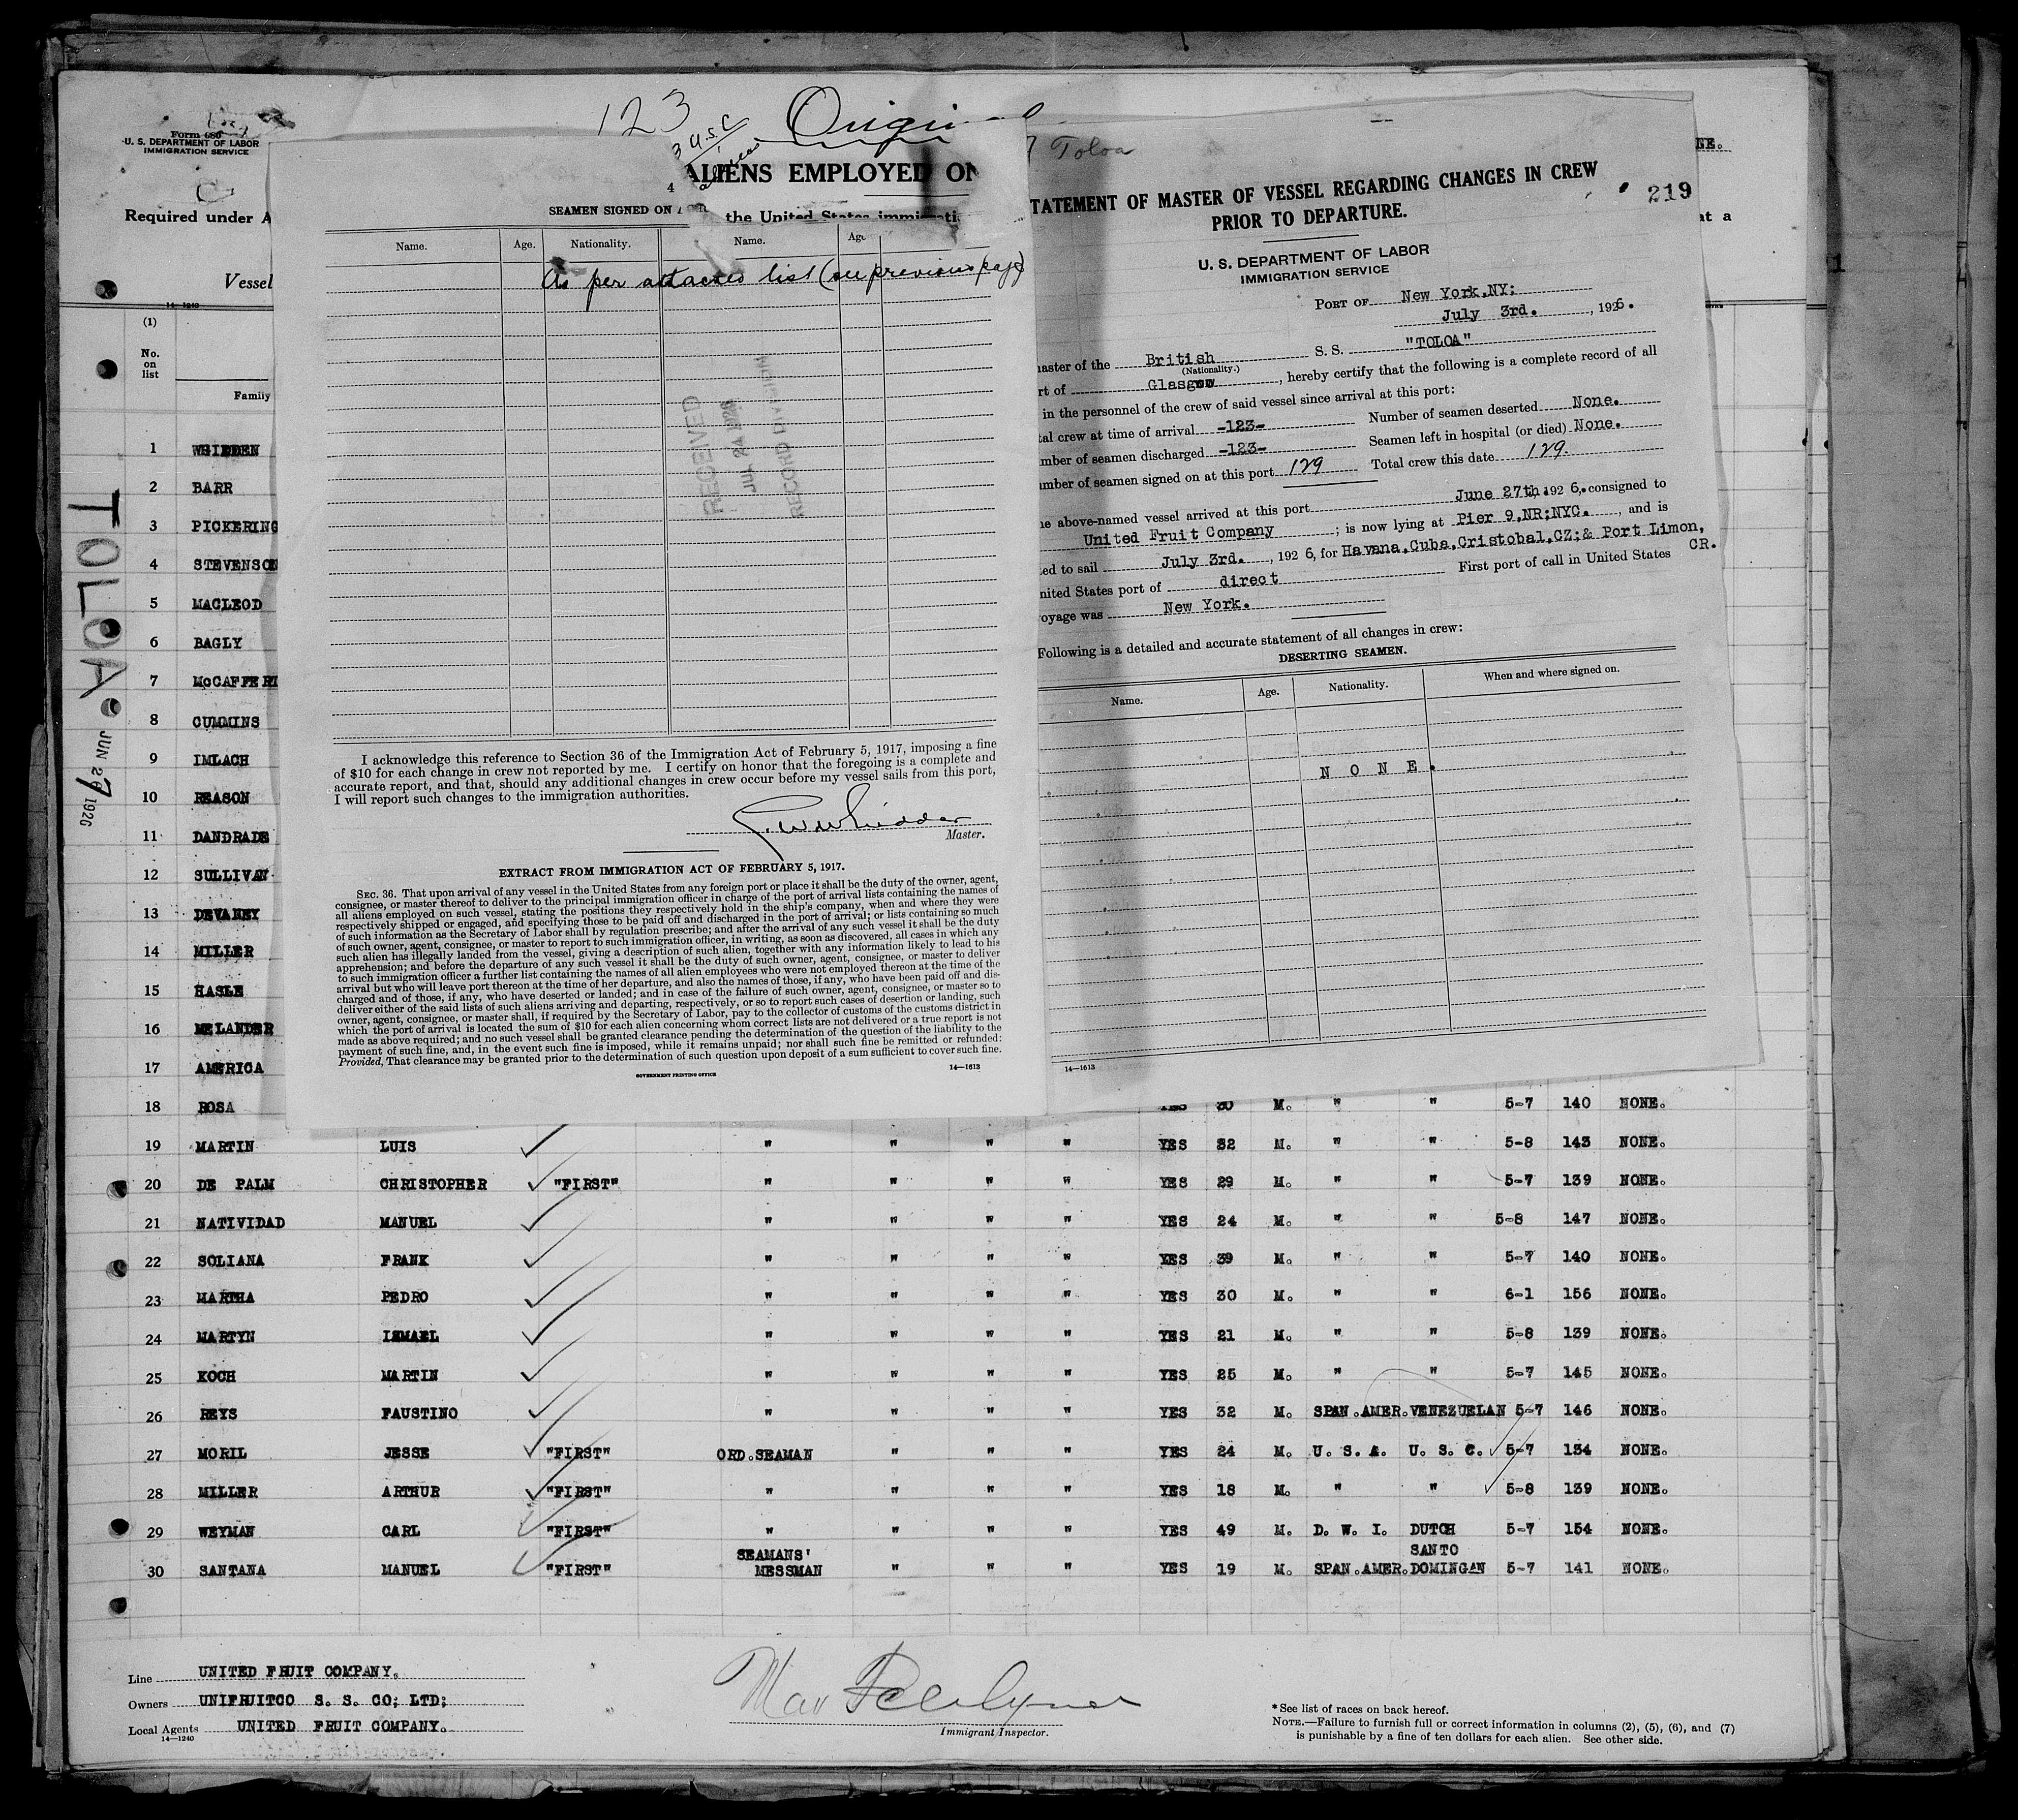 123 Original
Form 680
U. S. DEPARTMENT OF LABOR
IMMIGRATION SERVICE
Required under A
Vessel
14—1240
(1)
No.
on
list
Family
3 U.S.C
aliens
ALIENS EMPLOYED ON
the United States immigrati
NE.
at a
TOLOA
JUN 27 1926
4
SEAMEN SIGNED ON
Name. Age. Nationality. Name. Age
As per attached list (see previous page)
RECEIVED
JUL 24 1926
RECORD DIVISION
I acknowledge this reference to Section 36 of the Immigration Act of February 5, 1917, imposing a fine
of $10 for each change in crew not reported by me. I certify on honor that the foregoing is a complete and
accurate report, and that, should any additional changes in crew occur before my vessel sails from this port,
I will report such changes to the immigration authorities.
Whidden
Master.
EXTRACT FROM IMMIGRATION ACT OF FEBRUARY 5, 1917.
SEC. 36. That upon arrival of any vessel in the United States from any foreign port or place it shall be the duty of the owner, agent,
consignee, or master thereof to deliver to the principal immigration officer in charge of the port of arrival lists containing the names of
all aliens employed on such vessel, stating the positions they respectively hold in the ship's company, when and where they were
respectively shipped or engaged, and specifying those to be paid off and discharged in the port of arrival; or lists containing so much
of such information as the Secretary of Labor shall by regulation prescribe; and after the arrival of any such vessel it shall be the duty
of such owner, agent, consignee, or master to report to such immigration officer, in writing, as soon as discovered, all cases in which any
such alien has illegally landed from the vessel, giving a description of such alien, together with any information likely to lead to his
apprehension; and before the departure of any such vessel it shall be the duty of such owner, agent, consignee, or master to deliver
to such immigration officer a further list containing the names of all alien employees who were not employed thereon at the time of the
arrival but who will leave port thereon at the time of her departure, and also the names of those, if any, who have been paid off and dis-
charged and of those, if any, who have deserted or landed; and in case of the failure of such owner, agent, consignee, or master so to
deliver either of the said lists of such aliens arriving and departing, respectively, or so to report such cases of desertion or landing, such
owner, agent, consignee, or master shall, if required by the Secretary of Labor, pay to the collector of customs of the customs district in
which the port of arrival is located the sum of $10 for each alien concerning whom correct lists are not delivered or a true report is not
made as above required; and no such vessel shall be granted clearance pending the determination of the question of the liability to the
payment of such fine, and, in the event such fine is imposed, while it remains unpaid; nor shall such fine be remitted or refunded:
Provided, That clearance may be granted prior to the determination of such question upon deposit of a sum sufficient to cover such fine.
GOVERNMENT PRINTING OFFICE
14—1613
Toloa
TATEMENT OF MASTER OF VESSEL REGARDING CHANGES IN CREW
PRIOR TO DEPARTURE.
219
U. S. DEPARTMENT OF LABOR
IMMIGRATION SERVICE
PORT OF New York,NY;
July 3rd. , 1926.
master of the British S. S. "TOLOA"
(Nationality.)
rt of Glasgow , hereby certify that the following is a complete record of all
in the personnel of the crew of said vessel since arrival at this port:
tal crew at time of arrival -123- Number of seamen deserted None.
mber of seamen discharged -123- Seamen left in hospital (or died) None.
umber of seamen signed on at this port 129 Total crew this date 129.
he above-named vessel arrived at this port June 27th. 192 6, consigned to
United Fruit Company ; is now lying at Pier 9,NR;NYC. , and is
ted to sail July 3rd. , 192 6, for Havana,Cuba,Cristobal,CZ;& Port Limon,
CR.
nited States port of direct First port of call in United States
oyage was New York.
Following is a detailed and accurate statement of all changes in crew:
DESERTING SEAMEN.
Name. Age. Nationality. When and where signed on.
N O N E .
14—1613
1 WHIDDEN
2 BARR
3 PICKERING
4 STEVENSON
5 MACLEOD
6 BAGLY
7 McCAFFERT
8 CUMMINS
9 IMLACH
10 REASON
11 DANDRADE
12 SULLIVAN
13 DEVANEY
14 MILLER
15 HASLE
16 MELANDER
17 AMERICA
18 ROSA YES 30 M. " " 5-7 140 NONE.
19 MARTIN LUIS " " " " YES 32 M. " " 5-8 143 NONE.
20 DE PALM CHRISTOPHER "FIRST" " " " " YES 29 M. " " 5-7 139 NONE.
21 NATIVIDAD MANUEL " " " " YES 24 M. " " 5-8 147 NONE.
22 SOLIANA FRANK " " " " YES 39 M. " " 5-7 140 NONE.
23 MARTHA PEDRO " " " " YES 30 M. " " 6-1 156 NONE.
24 MARTYN ISMAEL " " " " YES 21 M. " " 5-8 139 NONE.
25 KOCH MARTIN " " " " YES 25 M. " " 5-7 145 NONE.
26 REYS FAUSTINO " " " " YES 32 M. SPAN.AMER. VENEZUELAN 5-7 146 NONE.
27 MORIL JESSE "FIRST" ORD.SEAMAN " " " YES 24 M. U. S. A. U. S. C. 5-7 134 NONE.
28 MILLER ARTHUR "FIRST" " " " " YES 18 M. " " 5-8 139 NONE.
29 WEYMAN CARL "FIRST" " " " " YES 49 M. D. W. I. DUTCH 5-7 154 NONE.
30 SANTANA MANUEL "FIRST" SEAMANS' MESSMAN " " " YES 19 M. SPAN.AMER. SANTO DOMINGAN 5-7 141 NONE.
Line UNITED FRUIT COMPANY.
Owners UNIFRUITCO S. S. CO; LTD;
Local Agents UNITED FRUIT COMPANY.
14—1240
Immigrant Inspector.
*See list of races on back hereof.
NOTE.—Failure to furnish full or correct information in columns (2), (5), (6), and (7)
is punishable by a fine of ten dollars for each alien. See other side.